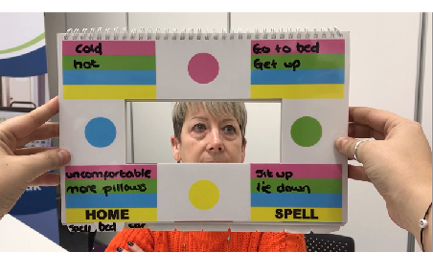 Cold
Hot
Go to bed
Get up
uncomfortable
more pillows
HOME
Sit up
lie down
SPELL
bed